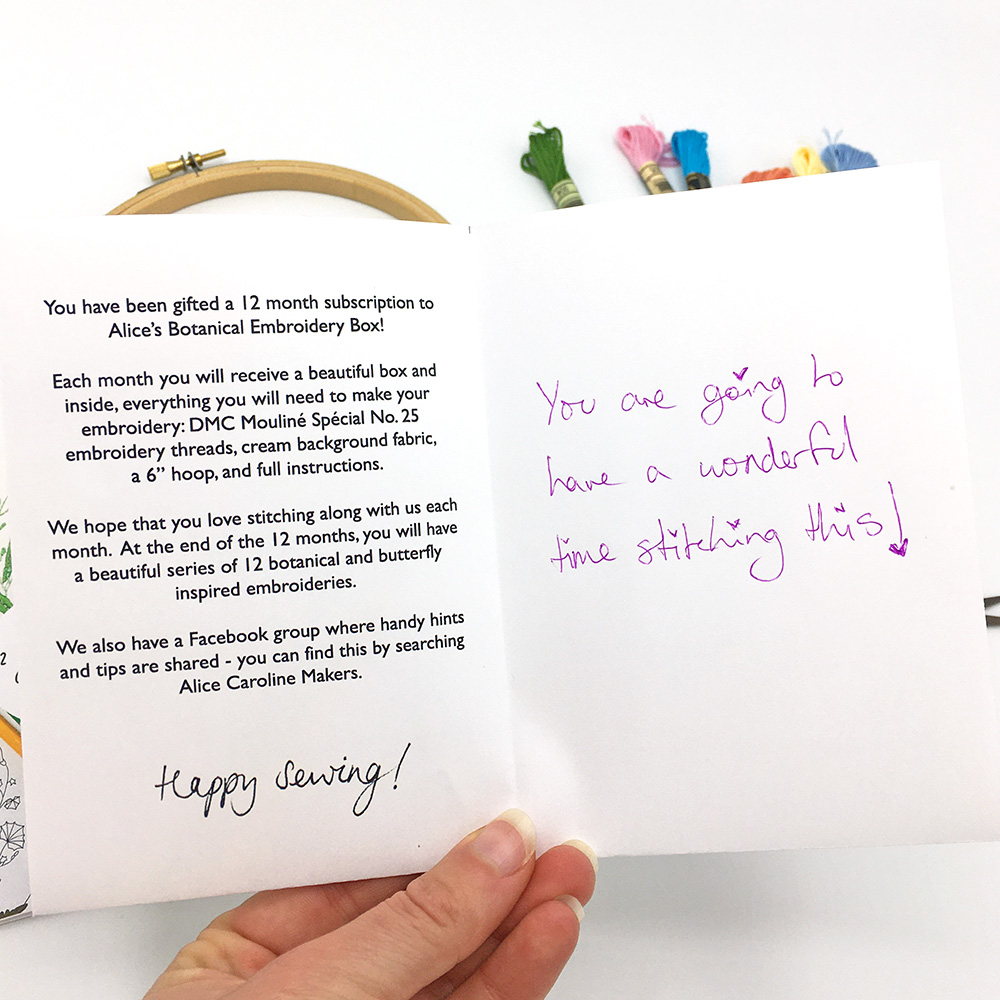 You have been gifted a 12 month subscription to
Alice's Botanical Embroidery Box!
Each month you will receive a beautiful box and
inside, everything you will need to make your
embroidery: DMC Mouliné Spécial No. 25
embroidery threads, cream background fabric,
a 6” hoop, and full instructions.
We hope that you love stitching along with us each
month. At the end of the 12 months, you will have
a beautiful series of 12 botanical and butterfly
inspired embroideries.
We also have a Facebook group where handy hints
and tips are shared - you can find this by searching
Alice Caroline Makers.
Happy Sewing!
You are going to
have a wonderful
time stitching this!